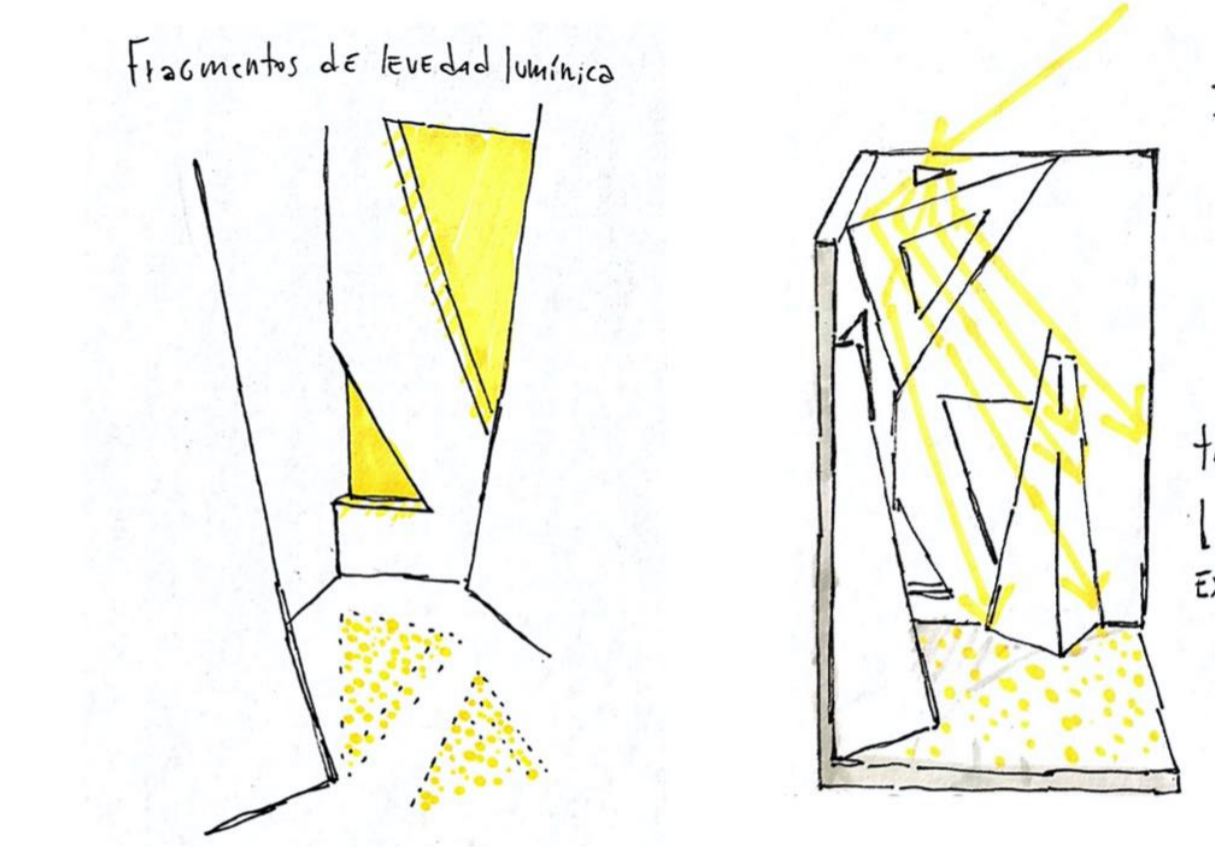 Fragmentos de levedad lumínica